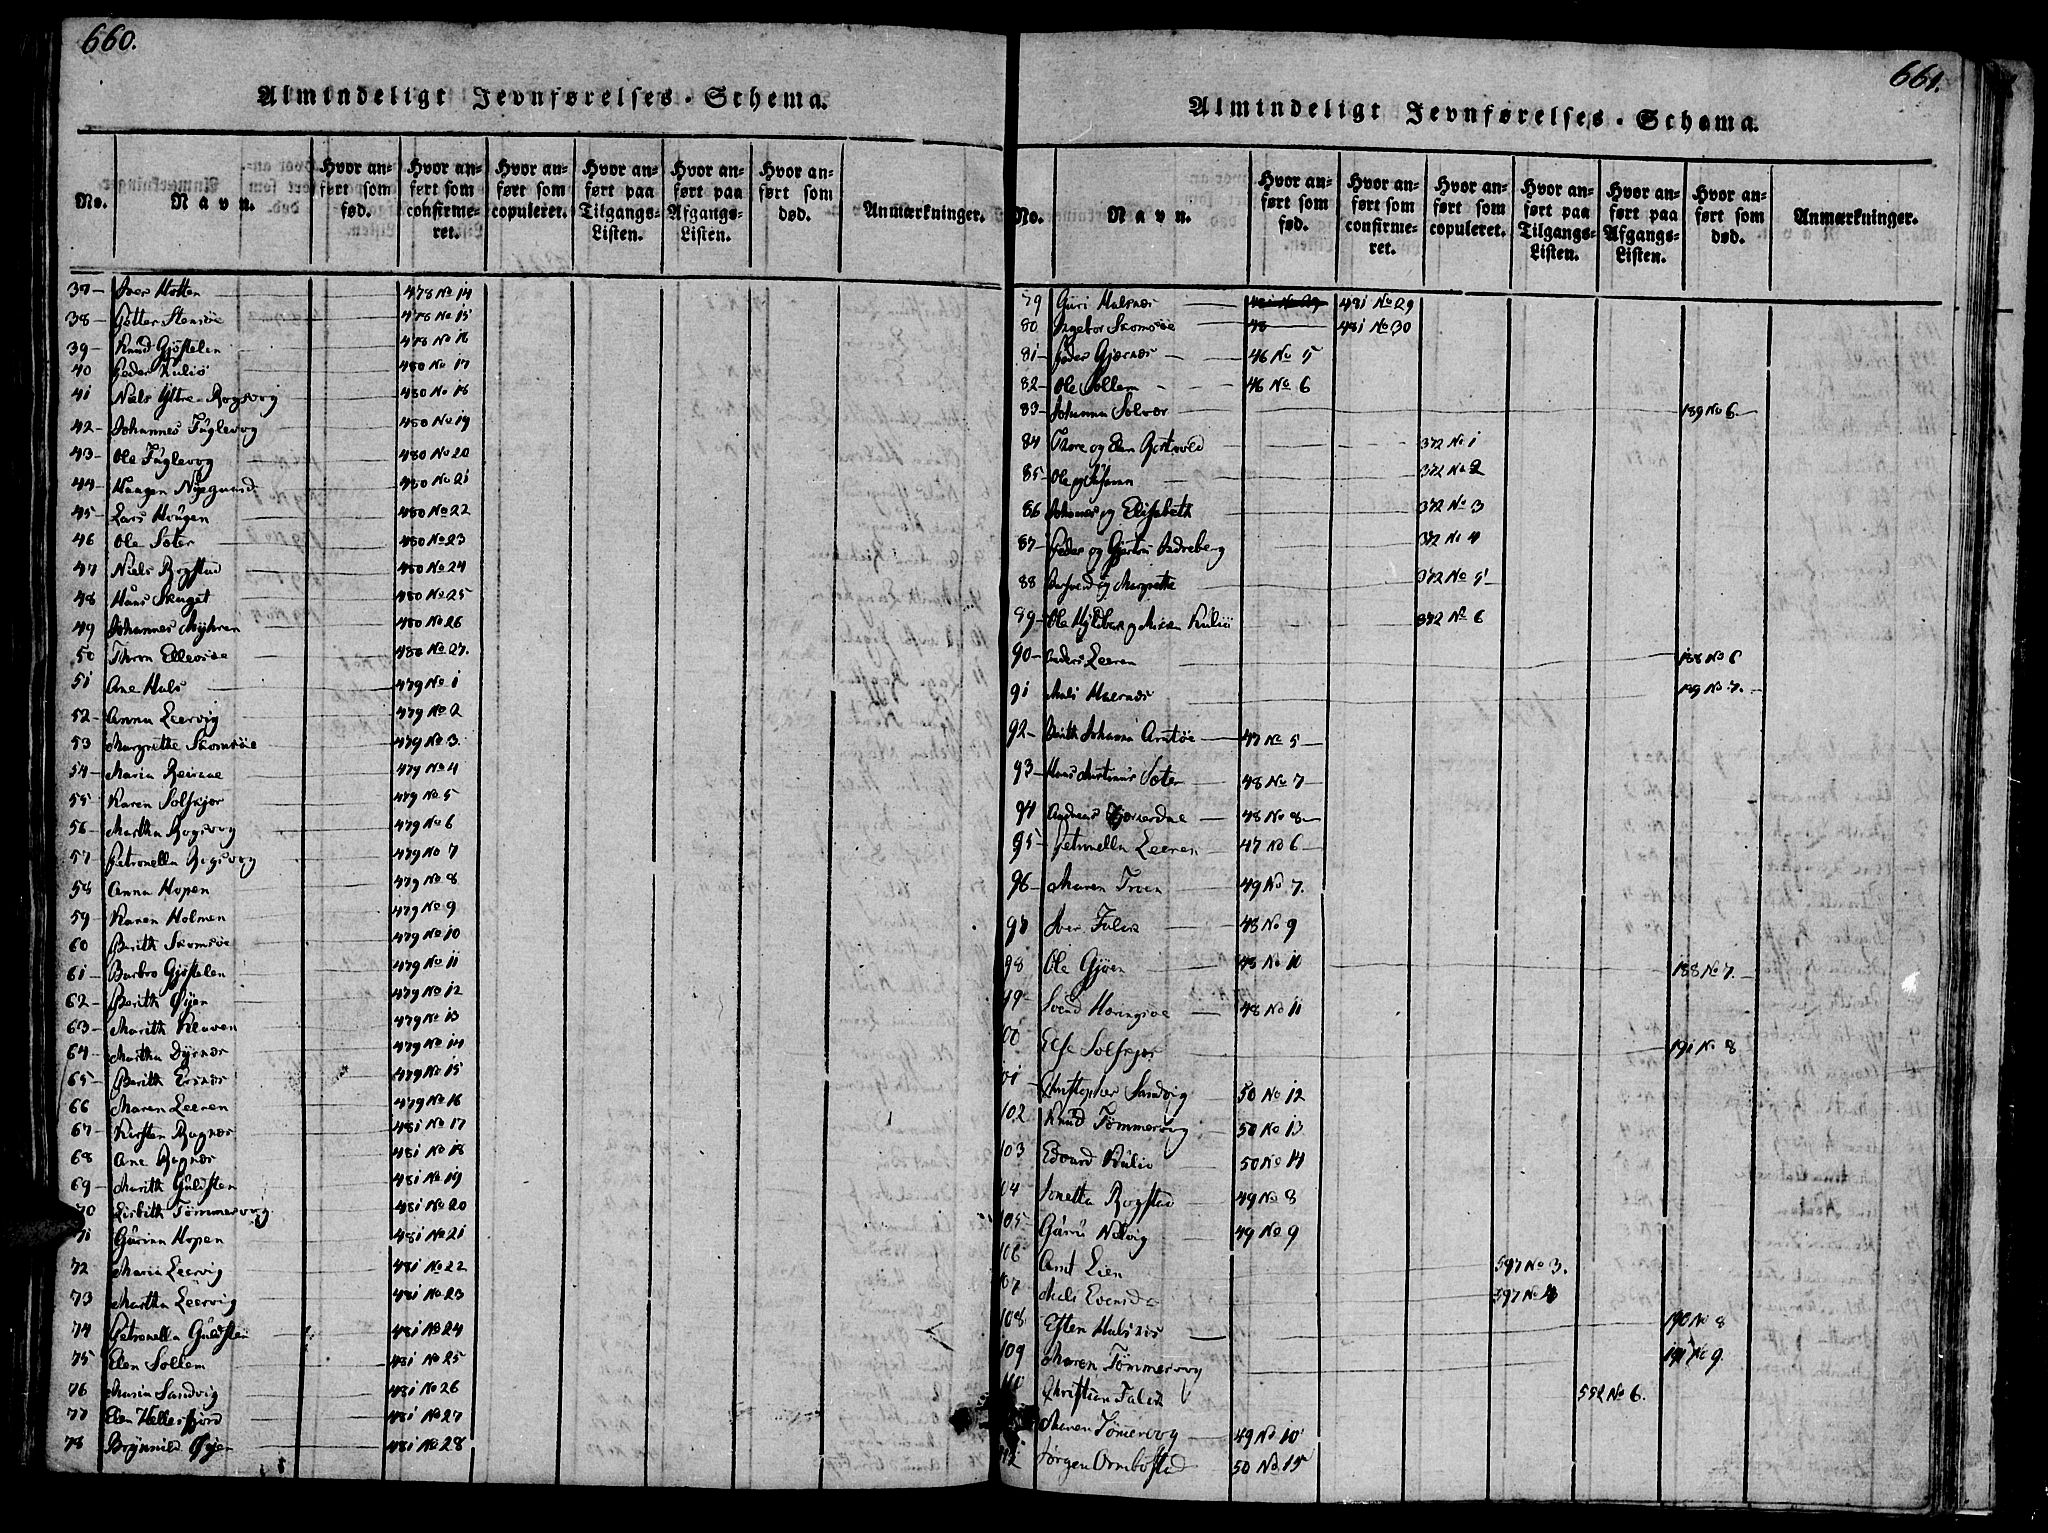 660.
Almindeligt Jevnførelses-Schema.
No.
Navn.
Hvor anført som fød.
Hvor anført som confirmeret.
Hvor anført som copuleret.
Hvor anført paa Tilgangs-Listen.
Hvor anført paa Afgangs-Listen.
Hvor anført som død.
Anmærkninger.
37 Iver Hotten 478 No 14
38 Petter Stensøe 478 No 15
39 Knud Gjøstelen 478 No 16
40 Peder Kuliø 480 No 17
41 Niels Yttre-Rogsvog 480 No 18
42 Johannes Fuglevog 480 No 19
43 Ole Fuglevog 480 No 20
44 Haagen Nygaard 480 No 21
45 Lars Hougen 480 No 22
46 Ole Soter 480 No 23
47 Niels Rogstad 480 No 24
48 Hans Skuget 480 No 25
49 Johannes Myhren 480 No 26
50 Thron Ellevsøe 480 No 27.
51 Ane Hals 479 No 1
52 Anna Leervig 479 No 2
53 Margrethe Skomsøe 479 No 3.
54 Maria 479 No 4
55 Karen Solskjør 479 No 5
56 Martha Rogsvog 479 No 6
57 Petronella Rogsvog 479 No 7
58 Anna Hopen 479 No 8
59 Karen Holmen 479 No 9
60 Berith Skomsøe 479 No 10
61 Barbro Gjøstelen 479 No 11
62 Berith Øyen 479 No 12
63 Marith Kleven 479 No 13
64 Martha Dyrnæs 479 No 14
65 Berith Ersnæs 479 No 15
66 Maren Leeren 479 No 16
67 Kirsten Ragnæs 481 No 17
68 Ane Ragnæs 481 No 18
69 Marith Guldsten 481 No 19
70 Lisbith Tømmervog 481 No 20
71 Gurina Hopen 481 No 21
72 Maria Leervig 481 No 22
73 Martha Leervig 481 No 23
74 Petronella Guldsten 481 No 24
75 Elen Sollem 481 No 25
76 Maria Sandvig 481 No 26
77 Elen Hellesfjord 481 No 27
78 Brynnild Øyen 481 No 28
661.
Almindeligt Jevnførelses-Schema.
No.
Navn.
Hvor anført som fød.
Hvor anført som confirmeret.
Hvor anført som copuleret.
Hvor anført paa Tilgangs-Listen.
Hvor anført paa Afgangs-Listen.
Hvor anført som død.
Anmærkninger.
79 Guri Halsnæs 481 No 29 481 No 29
80 Ingebor Skomsøe 48 481 No 30
81 Peder Gjernæs 46 No 5
82 Ole Sollem 46 No 6
83 Johanna Solvær 189 No 6
84 Thore og Elen 372 No 1
85 Ole og 372 No 2
86 Johanes og Elisabeth 372 No 3
87 Peder og Indreberg 372 No 4
88 og Margrethe 372 No 5
89 Ole og Maren Kuliø 372 No 6
90 Anders Leeren 188 No 6
91 189 No 7.
92 Berith Johanna 47 No 5
93 Hans Martinus Soter 48 No 7
94 Andreas 48 No 8
95 Petronella Leeren 47 No 6
96 Maren Troen 49 No 7.
97 Iver 48 No 9
98 Ole Gjøen 48 No 10 188 No 7.
99 Svend Haringsøe 48 No 11
100 Else Solskjør 191 No 8
101 Christopher Sandvig 50 No 12
102 Knud Tømmervog 50 No 13
103 Edvard Kuliø 50 No 14
104 Jonetta Rogstad 49 No 8
105 Guru 49 No 9
106 Arnt Lien 597 No 3.
107 597 No 4
108 Esten Halsnæs 190 No 8
109 Maren Tømmervog 191 No 9.
110 Christian 552 No 6.
Maren Tømervog 49 No 10
112 Jørgen Ormbostad 50 No 15